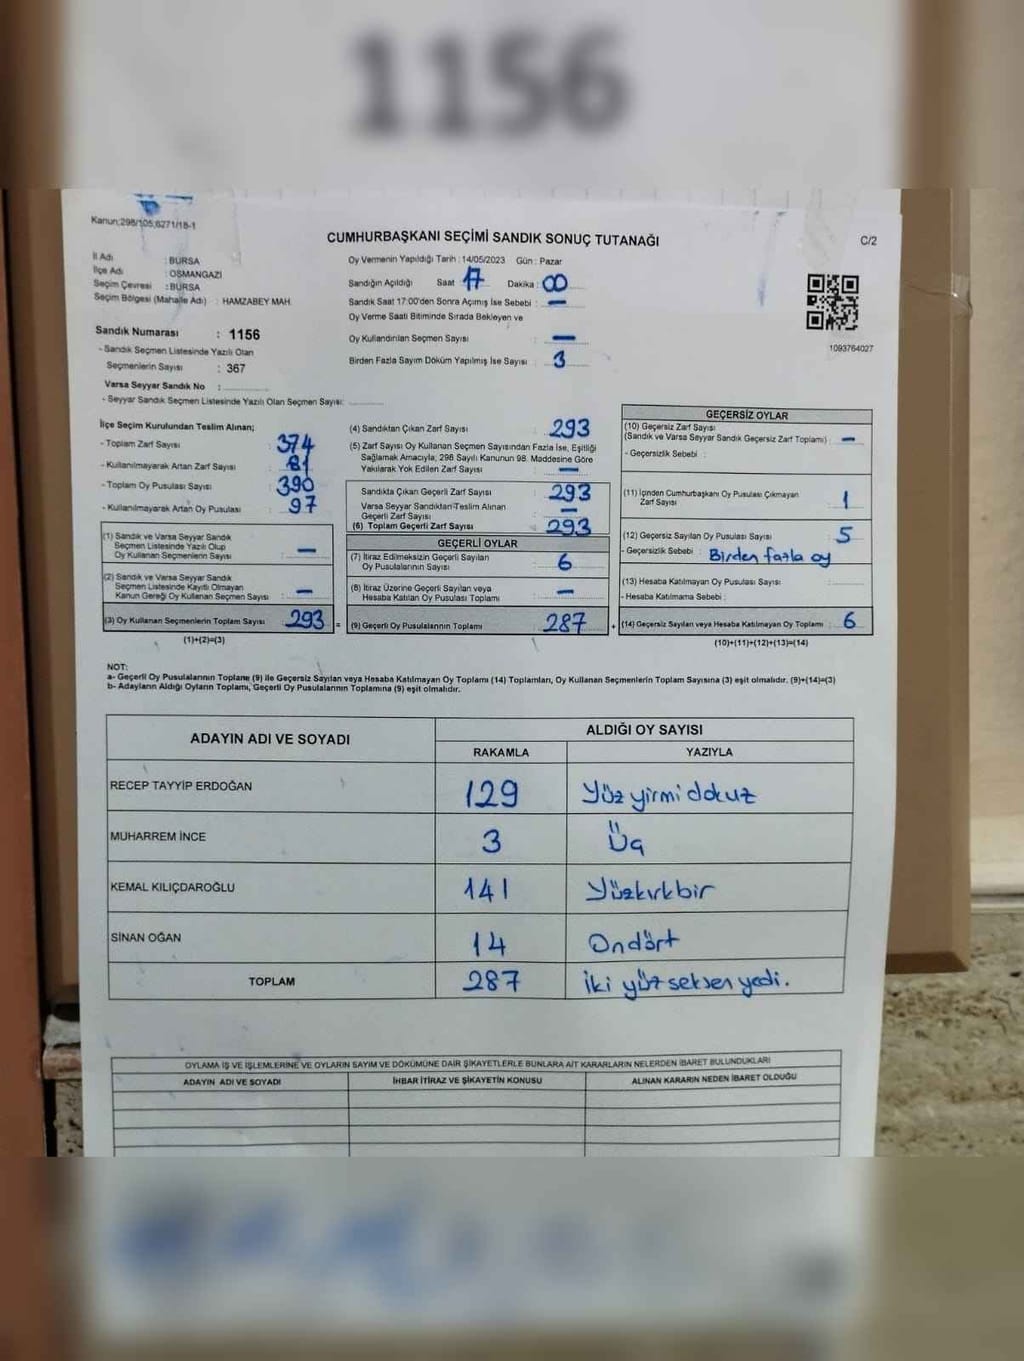 1156
Kanun;298/105;6271/18-1
CUMHURBAŞKANI SEÇİMİ SANDIK SONUÇ TUTANAĞI
C/2
İl Adı : BURSA
İlçe Adı : OSMANGAZİ
Seçim Çevresi : BURSA
Seçim Bölgesi (Mahalle Adı) : HAMZABEY MAH.
Sandık Numarası : 1156
- Sandık Seçmen Listesinde Yazılı Olan
Seçmenlerin Sayısı : 367
Varsa Seyyar Sandık No :
- Seyyar Sandık Seçmen Listesinde Yazılı Olan Seçmen Sayısı:
Oy Vermenin Yapıldığı Tarih : 14/05/2023 Gün : Pazar
Sandığın Açıldığı Saat : 17 Dakika : 00
Sandık Saat 17:00'den Sonra Açımış İse Sebebi : —
Oy Verme Saati Bitiminde Sırada Bekleyen ve
Oy Kullandırılan Seçmen Sayısı : —
Birden Fazla Sayım Döküm Yapılmış İse Sayısı : 3
1093764027
İlçe Seçim Kurulundan Teslim Alınan;
- Toplam Zarf Sayısı : 374
- Kullanılmayarak Artan Zarf Sayısı : 81
- Toplam Oy Pusulası Sayısı : 390
- Kullanılmayarak Artan Oy Pusulası : 97
(1) Sandık ve Varsa Seyyar Sandık
Seçmen Listesinde Yazılı Olup
Oy Kullanan Seçmenlerin Sayısı : —
(2) Sandık ve Varsa Seyyar Sandık
Seçmen Listesinde Kayıtlı Olmayan
Kanun Gereği Oy Kullanan Seçmen Sayısı : —
(3) Oy Kullanan Seçmenlerin Toplam Sayısı : 293
(1)+(2)=(3)
(4) Sandıktan Çıkan Zarf Sayısı : 293
(5) Zarf Sayısı Oy Kullanan Seçmen Sayısından Fazla İse, Eşitliği
Sağlamak Amacıyla, 298 Sayılı Kanunun 98. Maddesine Göre
Yakılarak Yok Edilen Zarf Sayısı : —
Sandıkta Çıkan Geçerli Zarf Sayısı : 293
Varsa Seyyar Sandıktan Teslim Alınan
Geçerli Zarf Sayısı : —
(6) Toplam Geçerli Zarf Sayısı : 293
GEÇERLİ OYLAR
(7) İtiraz Edilmeksizin Geçerli Sayılan
Oy Pusulalarının Sayısı : 6
(8) İtiraz Üzerine Geçerli Sayılan veya
Hesaba Katılan Oy Pusulası Toplamı : —
= (9) Geçerli Oy Pusulalarının Toplamı : 287 +
GEÇERSİZ OYLAR
(10) Geçersiz Zarf Sayısı
(Sandık ve Varsa Seyyar Sandık Geçersiz Zarf Toplamı) : —
- Geçersizlik Sebebi :
(11) İçinden Cumhurbaşkanı Oy Pusulası Çıkmayan
Zarf Sayısı : 1
(12) Geçersiz Sayılan Oy Pusulası Sayısı : 5
- Geçersizlik Sebebi : Birden fazla oy
(13) Hesaba Katılmayan Oy Pusulası Sayısı :
- Hesaba Katılmama Sebebi :
(14) Geçersiz Sayılan veya Hesaba Katılmayan Oy Toplamı : 6
(10)+(11)+(12)+(13)=(14)
NOT:
a- Geçerli Oy Pusulalarının Toplamı (9) ile Geçersiz Sayılan veya Hesaba Katılmayan Oy Toplamı (14) Toplamları, Oy Kullanan Seçmenlerin Toplam Sayısına (3) eşit olmalıdır. (9)+(14)=(3)
b- Adayların Aldığı Oyların Toplamı, Geçerli Oy Pusulalarının Toplamına (9) eşit olmalıdır.
ADAYIN ADI VE SOYADI
ALDIĞI OY SAYISI
RAKAMLA YAZIYLA
RECEP TAYYİP ERDOĞAN 129 Yüz yirmi dokuz
MUHARREM İNCE 3 Üç
KEMAL KILIÇDAROĞLU 141 Yüzkırkbir
SİNAN OĞAN 14 Ondört
TOPLAM 287 iki yüz seksen yedi.
OYLAMA İŞ VE İŞLEMLERİNE VE OYLARIN SAYIM VE DÖKÜMÜNE DAİR ŞİKAYETLERLE BUNLARA AİT KARARLARIN NELERDEN İBARET BULUNDUKLARI
ADAYIN ADI VE SOYADI İHBAR İTİRAZ VE ŞİKAYETİN KONUSU ALINAN KARARIN NEDEN İBARET OLDUĞU